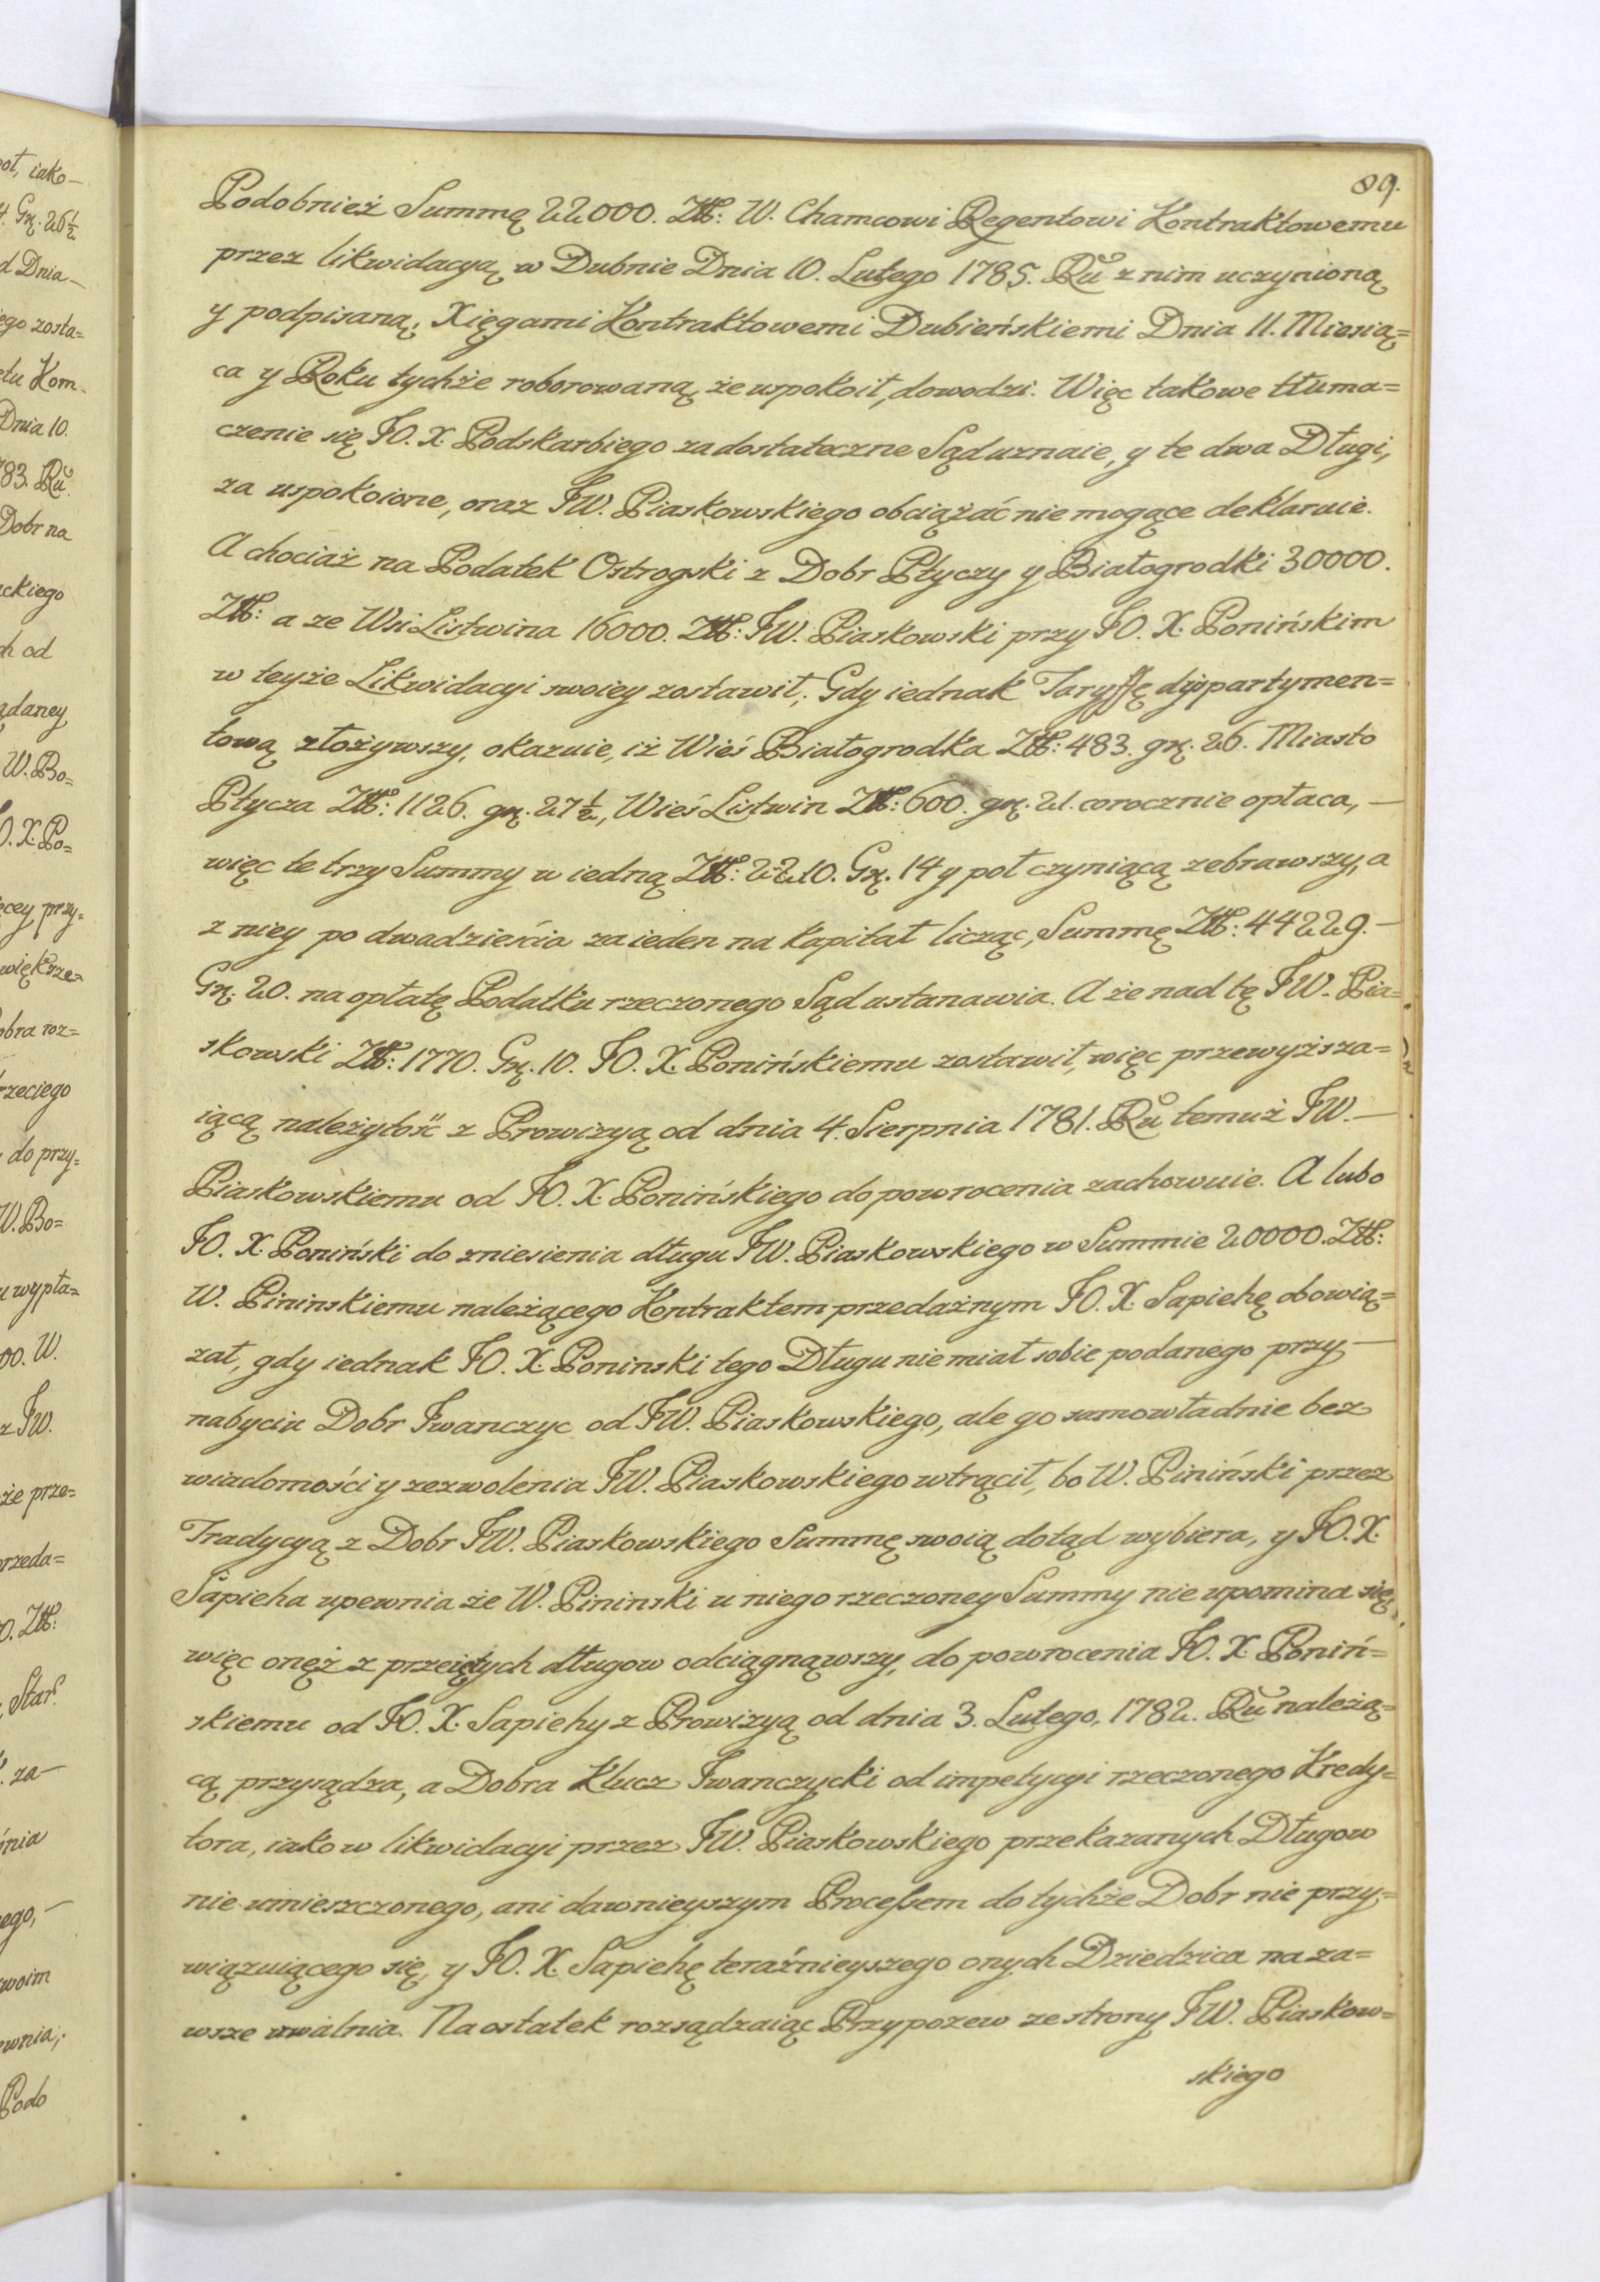 89.
Podobnież Summą 22000. Złł: W. Chamcowi Regentowi Kontraktowemu
przez likwidacyą w Dubnie Dnia 10. Lutego 1785. Ru z nim uczynioną
y podpisaną, Xięgami Kontraktowemi Dubieńskiemi Dnia 11. Miesią=
ca y Roku tychże roborowaną, że uspokoił, dowodzi. Więc takowe tłuma=
czenie się JO. X. Podskarbiego za dostateczne Sąd uznaie, y te dwa Długi,
za uspokoione, oraz JW. Piaskowskiego obciążać nie mogące deklaruie.
A chociaż na Podatek Ostrogski z Dobr Płyczy y Białogrodki 30000.
Złł: a ze Wsi Listwina 16000. Złł: JW. Piaskowski przy JO. X. Ponińskim
w teyże Likwidacyi swoiey zostawił; Gdy iednak Taryffę dyspartymen=
tową złożywszy, okazuie, iż Wieś Białogrodka Złł: 483. gr. 26. Miasto
Płycza Złł: 1126. gr. 27½, Wieś Listwin Złł: 600. gr. 21. corocznie opłaca, —
więc te trzy Summy w iedną Złł: 2210. Gr. 14 y poł czyniącą zebrawszy, a
z niey po dwadzieścia za ieden na kapitał licząc, Summę Złł: 44229. —
Gr. 20. na opłatę Podatku rzeczonego Sąd ustanawia. A że nad tę JW. Pia=
skowski Złł: 1770. Gr. 10. JO. X. Ponińskiemu zostawił, więc przewyższa=
iącą należytość z Prowizyą od dnia 4. Sierpnia 1781. Ru temuż JW. —
Piaskowskiemu od JO. X. Ponińskiego do powrocenia zachowuie. A lubo
JO. X. Poniński do zniesienia długu JW. Piaskowskiego w Summie 20000. Złł:
W. Pininskiemu należącego Kontraktem przedażnym JO. X. Sapiehę obowią=
zał, gdy iednak JO. X. Poninski tego Długu nie miał sobie podanego przy —
nabyciu Dobr Iwanczyc od JW. Piaskowskiego, ale go samowładnie bez
wiadomości y zezwolenia JW. Piaskowskiego wtrącił, bo W. Piniński przez
Tradycyą z Dobr JW. Piaskowskiego Summę swoią dotąd wybiera, y JO. X.
Sapieha upewnia że W. Pininski u niego rzeczoney Summy nie upomina się,
więc onęż z przeiętych długow odciągnąwszy, do powrocenia JO. X. Poniń=
skiemu od JO. X. Sapiehy z Prowizyą od dnia 3. Lutego, 1782. Ru należą=
cą przysądza, a Dobra Klucz Iwanczycki od impetycyi rzeczonego Kredy=
tora, iako w likwidacyi przez JW. Piaskowskiego przekazanych Długow
nie umieszczonego, ani dawnieyszym Processem do tychże Dobr nie przy=
wiązuiącego się, y JO. X. Sapiehę teraźnieyszego onych Dziedzica na za=
wsze uwalnia. Na ostatek rozsądzaiąc Przypozew ze strony JW. Piaskow=
skiego